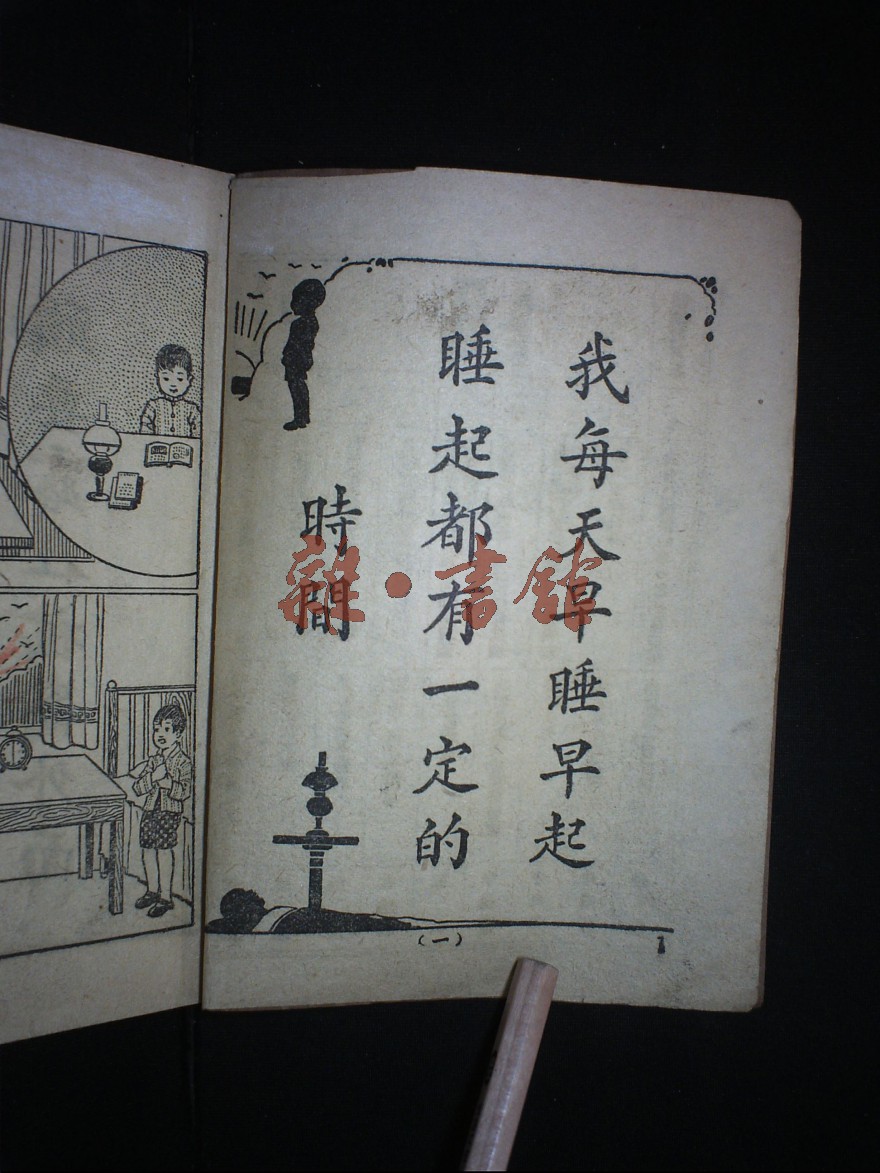 我每天早睡早起
睡起都有一定的
時間
(一)
1
雜·書館